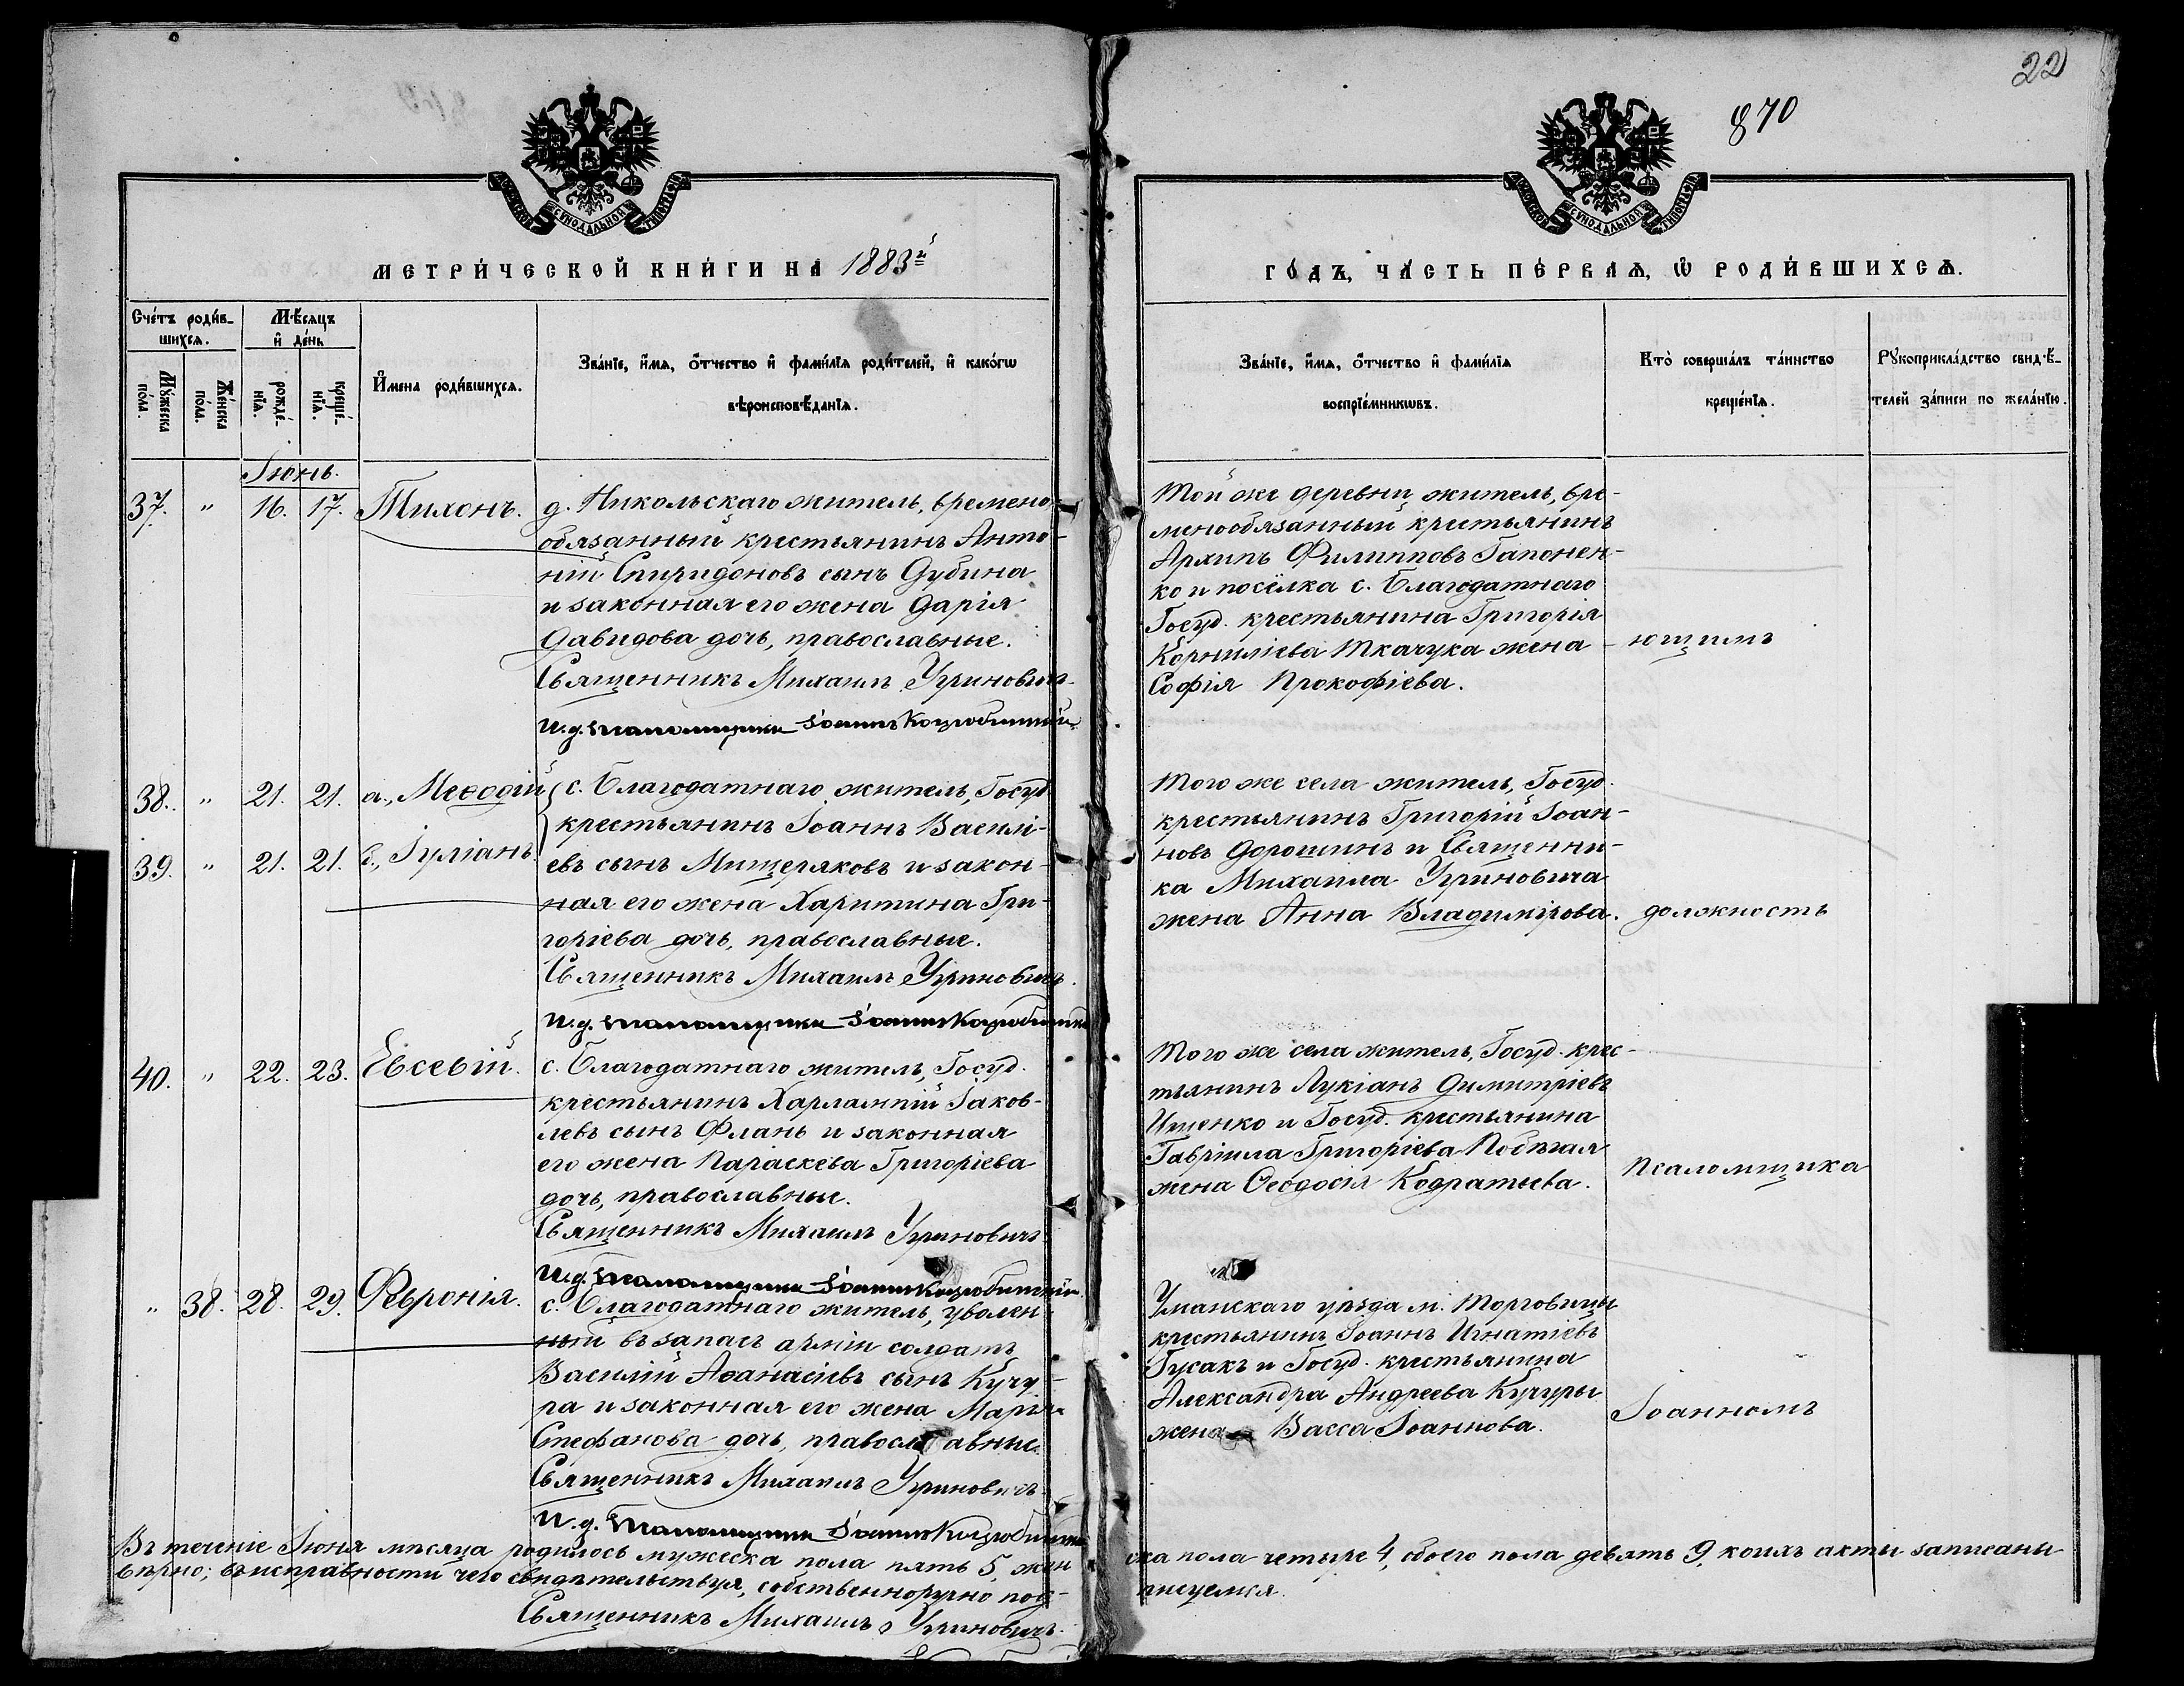 22
870
МОСКОВСКОЙ СѴНОДАЛЬНОЙ ТИПОГРАФІИ
МОСКОВСКОЙ СѴНОДАЛЬНОЙ ТИПОГРАФІИ
МЕТРИ́ЧЕСКОЙ КНИ́ГИ НА 1883й
ГО́ДЪ, ЧА́СТЬ ПЕ́РВАѦ, Ѡ РОДИ́ВШИХСѦ.
Сче́тъ роди́в-
шихсѧ.
Мѣ́сяцъ
и де́нь
Му́жеска
по́ла.
Же́нска
по́ла.
рожде́-
нїѧ.
креще́-
нїѧ.
И́мена роди́вшихсѧ.
Зва́нїе, и́мѧ, о́тчество и фами́лїѧ роди́телей, и како́гѡ
вѣроисповѣ́данїѧ.
Зва́нїе, и́мѧ, о́тчество и фами́лїѧ
воспрїе́мникѡвъ.
Кто̀ соверша́лъ та́инство
креще́нїѧ.
Рꙋкоприкла́дство свидѣ́-
телей за́писи по жела́нїю.
Іюнь.
37. " 16. 17. Тихонъ.
д. Никольскаго житель, времено-
обязанный крестьянинъ Анто-
ній Спиридоновъ сынъ Дубина
и законная его жена Дарія
Давидова дочь, православные.
Священникъ Михаилъ Угриновичъ
И.д. псаломщика Іоаннъ Коцюбинскій
Той же деревни житель, вре-
менообязанный крестьянинъ
Архипъ Филипповъ Гапонен-
ко и посёлка с. Благодатнаго
Госуд. крестьянина Григорія
Корниліева Ткачука жена
Софія Прокофіева.
ющимъ
38. " 21. 21. а., Меѳодій
39. " 21. 21. б., Іуліанъ.
с. Благодатнаго житель, Госуд.
крестьянинъ Іоаннъ Василі-
евъ сынъ Мищеряковъ и закон-
ная его жена Харитина Гри-
горіева дочь, православные.
Священникъ Михаилъ Угриновичъ.
И.д. псаломщика Іоаннъ Коцюбинскій
Того же села житель, Госуд.
крестьянинъ Григорій Іоан-
новъ Дорошинъ и Священни-
ка Михаила Угриновича
жена Анна Владимірова.
должность
40. " 22. 23. Евсевій.
с. Благодатнаго житель, Госуд.
крестьянинъ Харлампій Іаков-
левъ сынъ Флань и законная
его жена Параскева Григоріева
дочь, православные.
Священникъ Михаилъ Угриновичъ
И.д. псаломщика Іоаннъ Коцюбинскій
Того же села житель, Госуд. крес-
тьянинъ Лукіанъ Димитріевъ
Ищенко и Госуд. крестьянина
Гавріила Григоріева Побѣгая
жена Ѳеодосія Кодратьева.
Псаломщика
" 38. 28. 29. Февронія.
с. Благодатнаго житель, уволен-
ный въ запасъ арміи солдатъ
Василій Аѳанасіевъ сынъ Кучу-
ра и законная его жена Марія
Стефанова дочь, православные.
Священникъ Михаилъ Угриновичъ
И.д. псаломщика Іоаннъ Коцюбинскій
Уманскаго уѣзда м. Торговицы
крестьянинъ Іоаннъ Игнатіевъ
Гусакъ и Госуд. крестьянина
Александра Андреева Кучуры
жена Васса Іоаннова.
Іоанномъ
Въ теченіе Іюня мѣсяца родилось мужеска пола пять 5, жен
ска пола четыре 4, обоего пола девять 9, коихъ акты записаны
вѣрно; въ исправности чего свидѣтельствуя, собственноручно под-
писуемся.
Священникъ Михаилъ Угриновичъ.